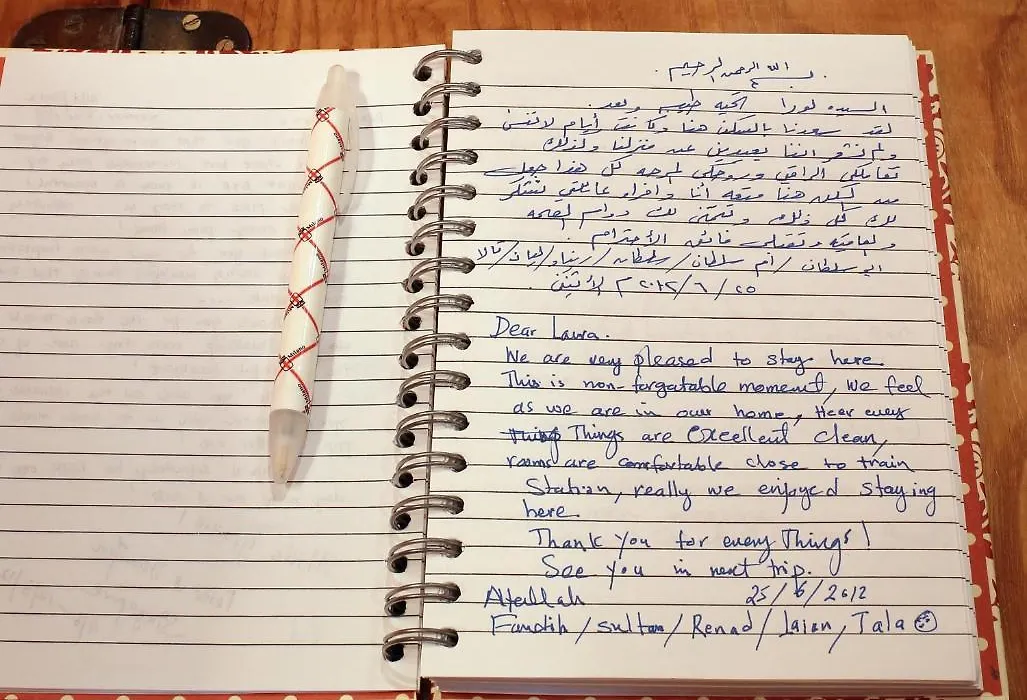 بسم الله الرحمن الرحيم
السيده لورا تحيه طيبه وبعد
لقد سعدنا بالسكن هنا وكانت أيام لاتنسى
ولم نشعر اننا بعيدين عن منزلنا ولذلك
تعاملكي الراقي وروحكي المرحه كل هذا جعل
من السكن هنا متعه أنا وافراد عائلتي نشكر
لك كل ذلك ونتمنى لك دوام الصحه
والعافيه وتقبلي فائق الأحترام
ابو سلطان / أم سلطان / سلطان / ريناد / ليان / تالا
٢٥ / ٦ / ٢٠١٢ م الأثنين
Dear Laura.
We are very pleased to stay here.
This is non-forgatable moment, we feel
as we are in our home, Hear every
Things are excellent clean,
rooms are comfortable close to train
Station, really we enjoyed staying
here.
Thank you for every Things!
See you in next trip.
Atallah 25/6/2012
/ Sultan / Renad / Laian, Tala ☺
Milano